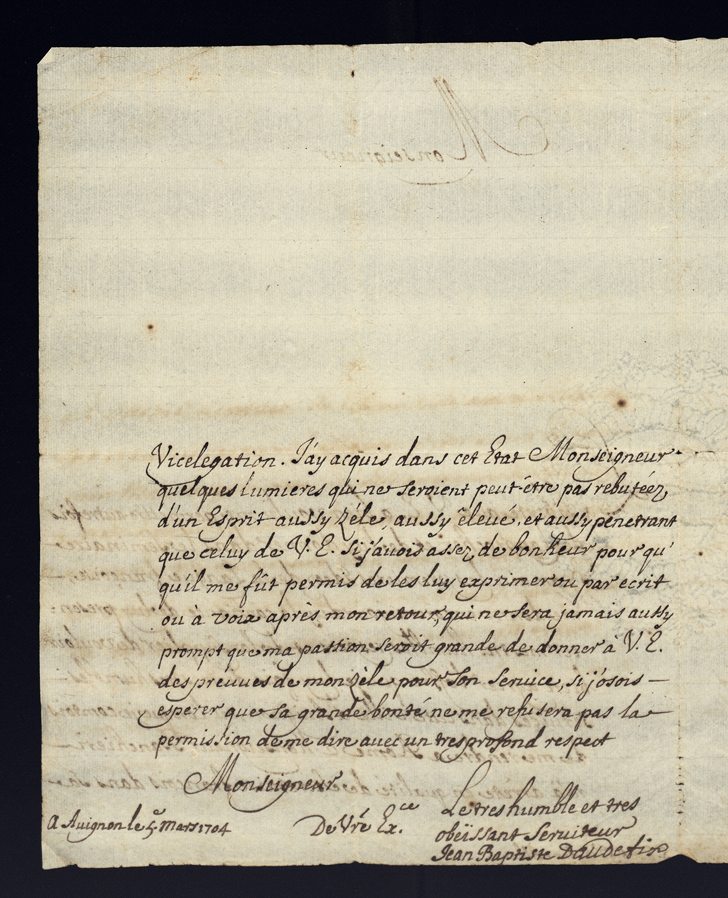 Monseigneur
Vicelegation. J'ay acquis dans cet Etat Monseigneur
quelques lumieres qui ne seroient peut-être pas rebutéez
d'un Esprit aussy zèle, aussy êlevé, et aussy pènetrant
que celuy de V. E. si j'avois assez de bonheur pour qu'
qu'il me fût permis de les luy exprimer ou par ecrit
ou à voix après mon retour, qui ne sera jamais aussy
prompt que ma passion seroit grande de donner à V. E.
des preuves de mon zèle pour son service, si j'osois —
esperer que sa grande bonté ne me refusera pas la
permission de me dire avec un tres profond respect
Monseigneur
A Avignon le 5 mars 1704
De Vre Ex.ce
Le tres humble et tres
obeissant Serviteur
Jean Baptiste